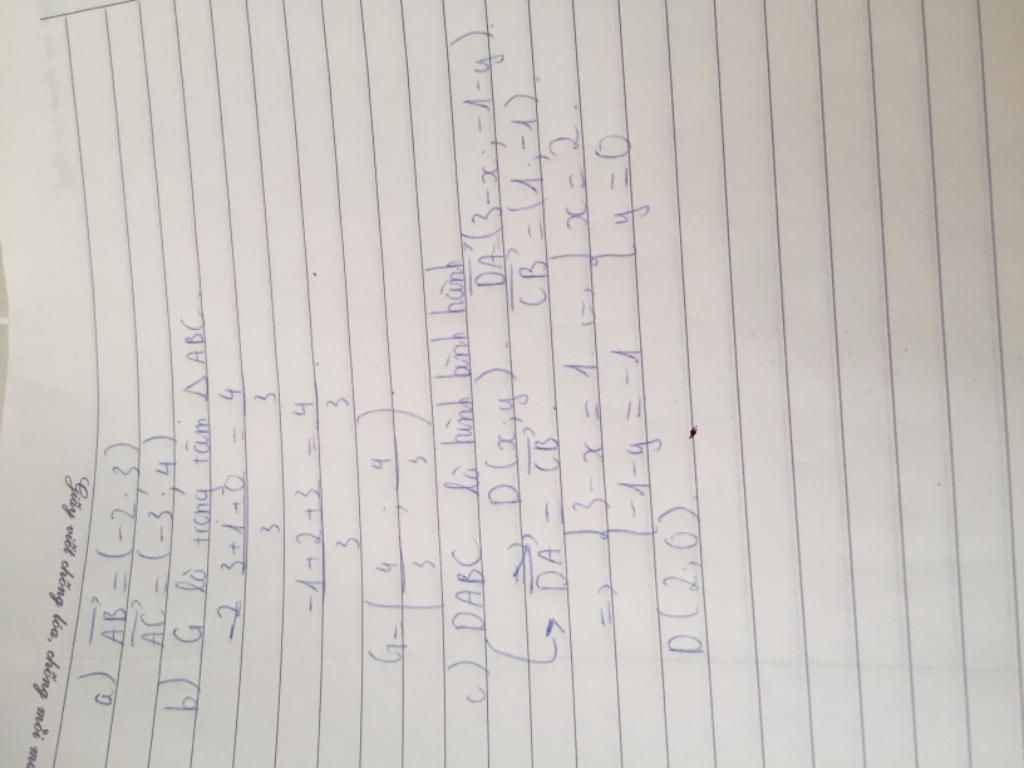 Giấy viết chống lóa, chống mỏi m
a) AB⃗ = (-2; 3)
AC⃗ = (-3; 4)
b) G là trọng tâm △ ABC.
3+1+0/3 = 4/3
-1+2+3/3 = 4/3
G = (4/3 ; 4/3)
c) DABC là hình bình hành
D(x;y). DA⃗ = (3-x; -1-y).
DA⃗ = CB⃗ CB⃗ = (1; -1)
=> { 3-x = 1 => { x = 2
{ -1-y = -1 { y = 0
D(2,0)